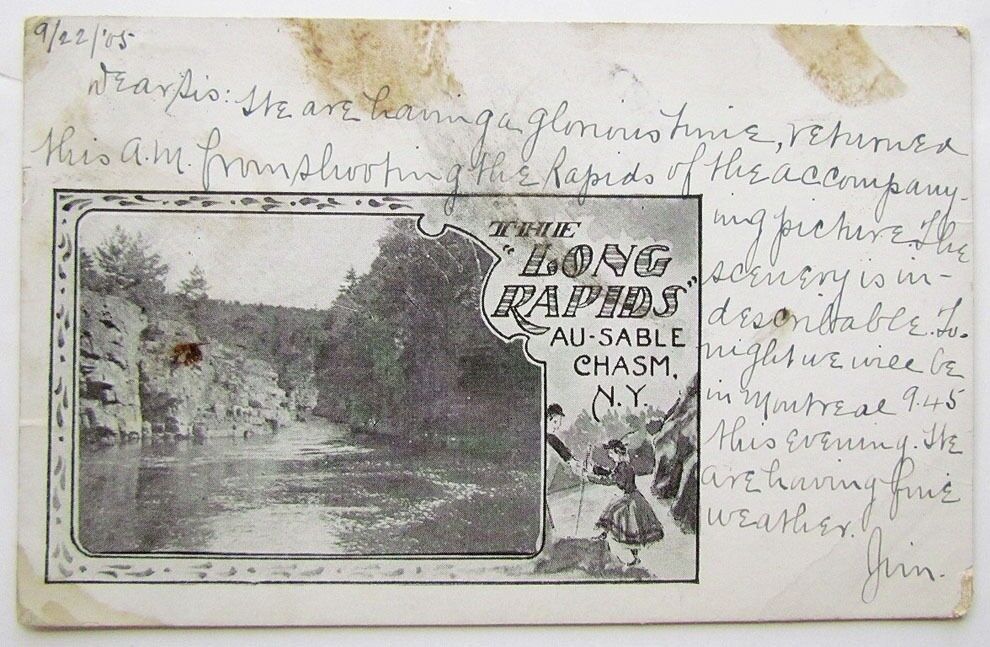 9/22/'05
Dear Sis: We are having a glorious time, returned
this A.M. from shooting the Rapids of the accompany-
ing picture. The
scenery is in-
describable. To-
night we will be
in Montreal 9.45
this evening. We
are having fine
weather.
Jim.
THE
"LONG
RAPIDS"
AU-SABLE
CHASM,
N.Y.